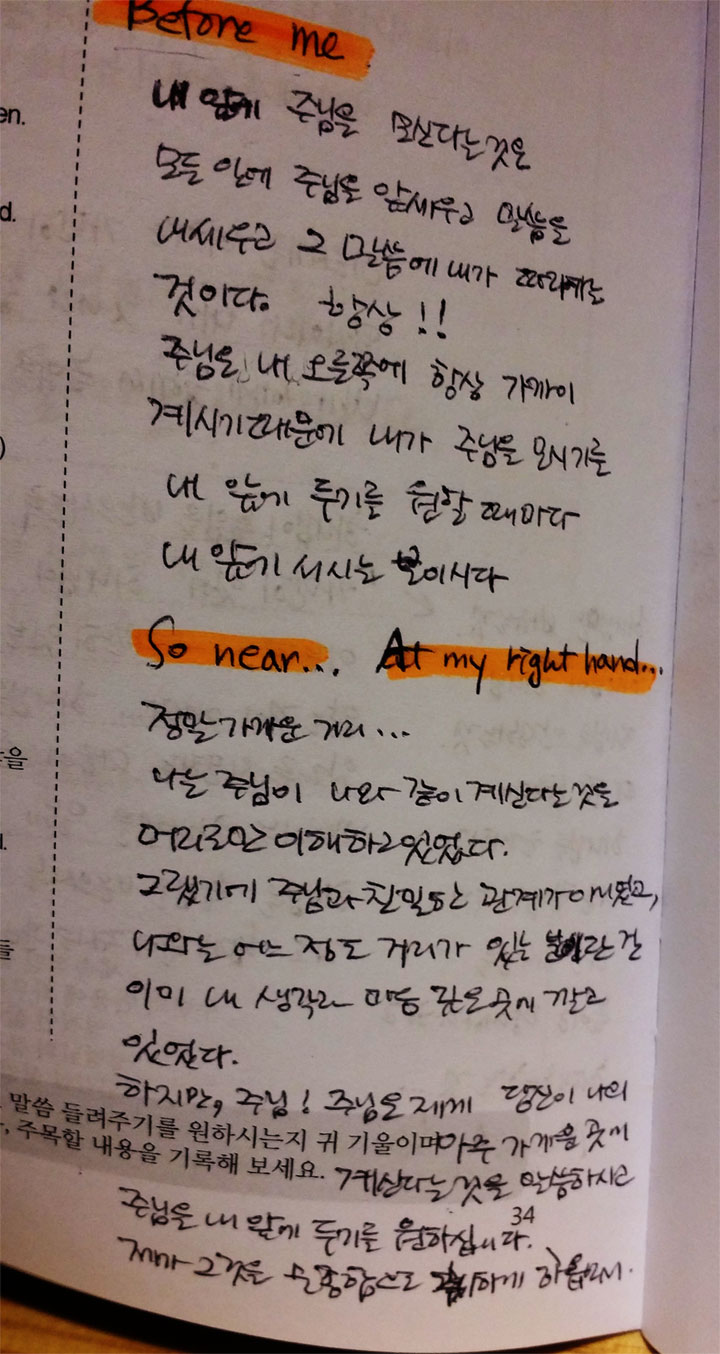 Before me
내 앞에 주님을 모신다는것은
모든 일에 주님을 앞세우고 말씀을
내세우고 그 말씀에 내가 따라가는
것이다. 항상!!
주님은 내 오른쪽에 항상 가까이
계시기때문에 내가 주님을 모시기를
내 앞에 두기를 원할 때마다
내 앞에 서시는 분이시다
So near... At my right hand...
정말 가까운 거리...
나는 주님이 나와 같이 계신다는것을
머리로만 이해하고있었다.
그랬기에 주님과 친밀한 관계가
나와는 어느 정도 거리가 있는 분이란 걸
이미 내 생각과 마음 깊은 곳에 깔고
있었다.
하지만, 주님! 주님은 제게 당신이 나의
아주 가까운 곳에
말씀 들려주기를 원하시는지 귀 기울이며
, 주목할 내용을 기록해 보세요.
계신다는것을 말씀하시고
34
주님을 내 앞에 두기를 원하십니다.
제가 그것을 순종함으로 하게 하옵소서.
en.
d.
)
을
l.
들